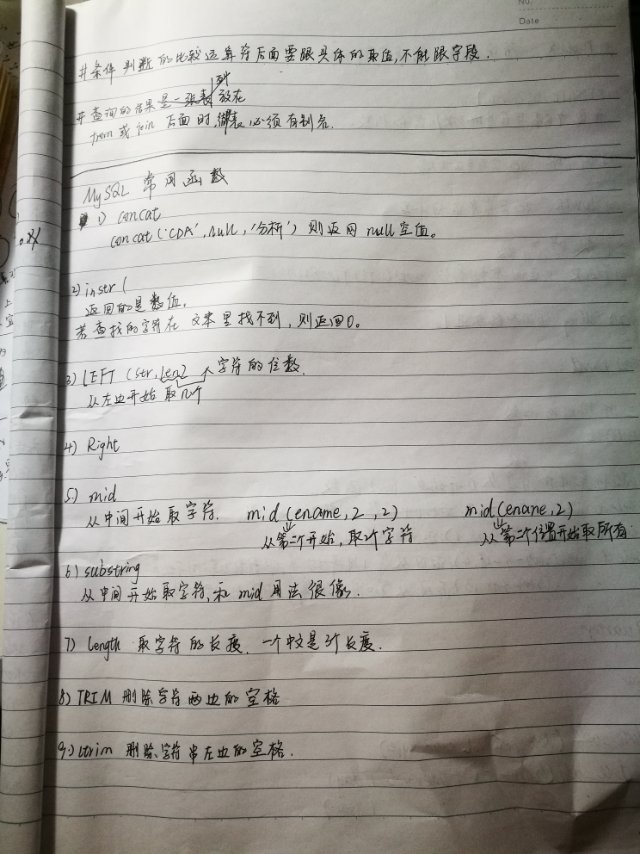 No.
Date
#条件判断的比较运算符后面要跟具体的取值,不能跟字段.
#查询的结果是一张表 列 放在
from 或 join 后面时, 表必须有别名.
MySQL 常用函数
1) concat
concat('CDA', null, '分析') 则返回 null 空值。
2) instr (
返回的是数值,
若查找的字符在 文本里找不到, 则返回0。
3) LEFT (str, len) 字符的位数.
从左边开始取几个
4) Right
5) mid
从中间开始取字符. mid(ename, 2, 2) mid(ename, 2)
从第二个开始, 取2个字符 从第二个位置开始取所有
6) substring
从中间开始取字符, 和 mid 用法很像.
7) Length 取字符的长度. 一个中文是3个长度.
8) TRIM 删除字符两边的空格
9) ltrim 删除字符串左边的空格.